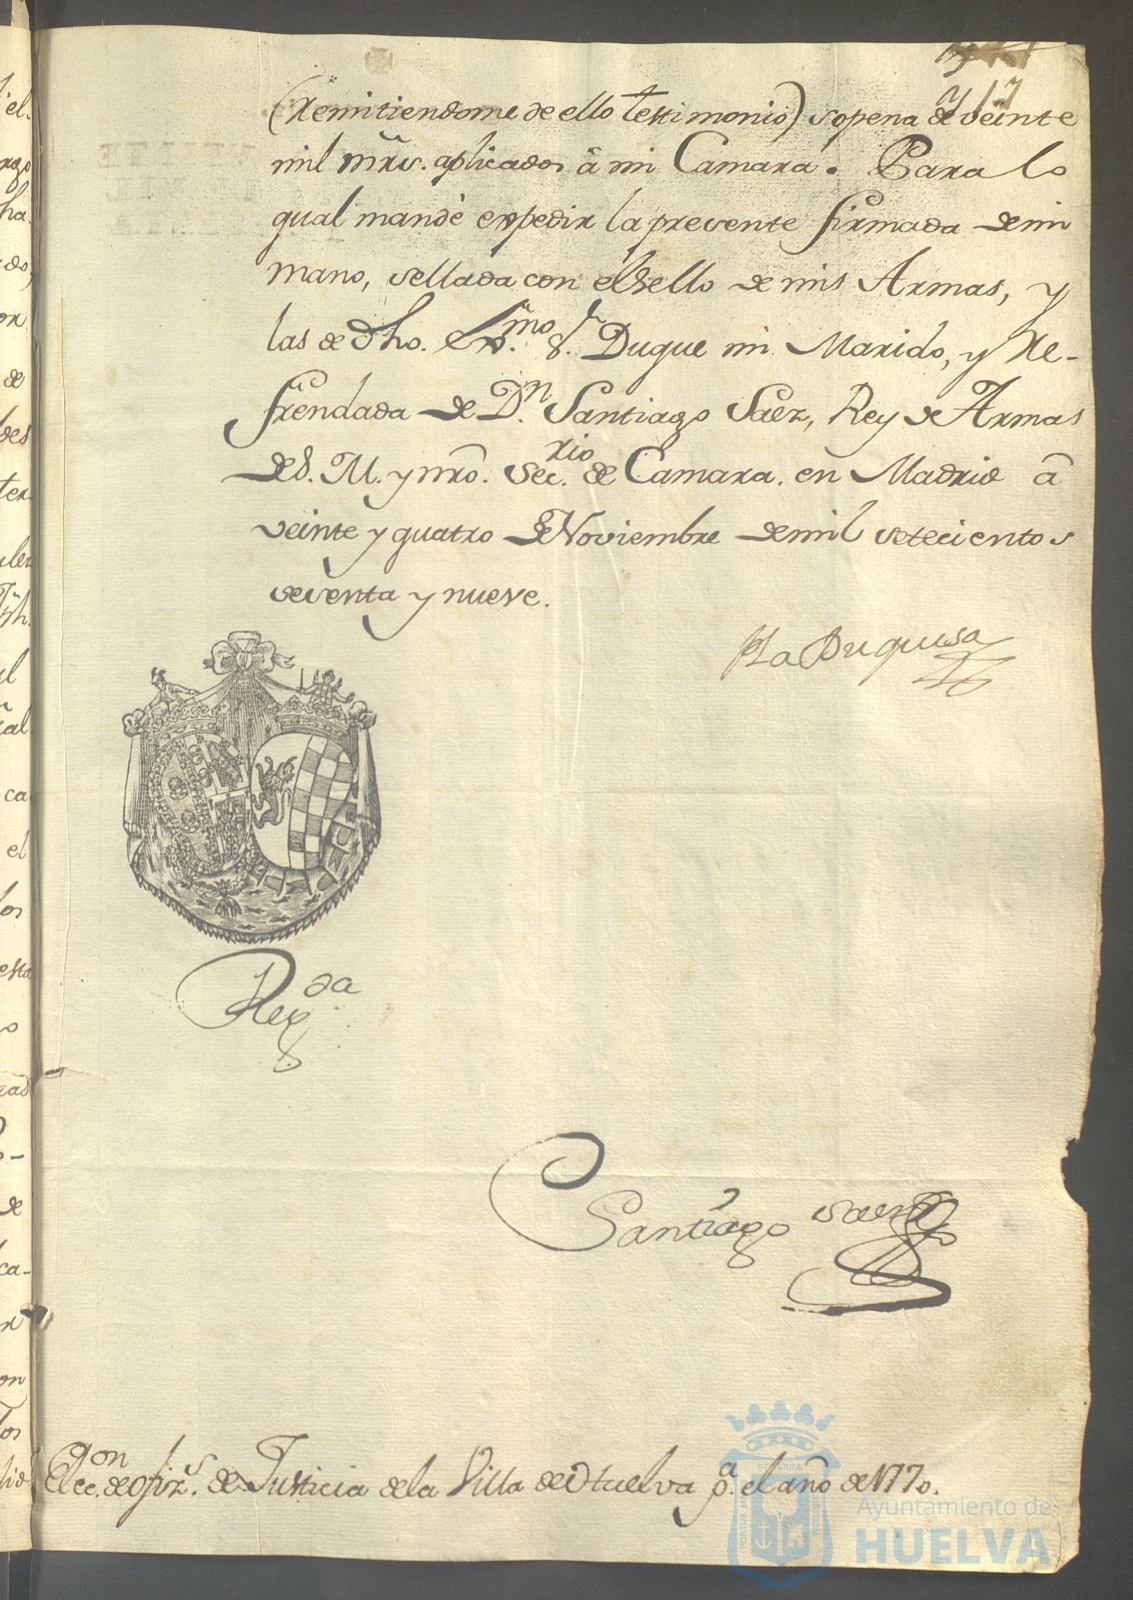 17
(Remitiendome de ello testimonio) sopena de veinte
mil mrs. aplicados â mi Camara. Para lo
qual mandè expedir la presente firmada de mi
mano, sellada con el Sello de mis Armas, y
las de dho. Exmo. Sr. Duque mi Marido, y Re-
frendada de Dn. Santiago Saez, Rey de Armas
de S. M. y nro. Secrio. de Camara. en Madrid â
veinte y quatro de Noviembre de mil setecientos
sesenta y nueve.
La Duquesa
Regda.
Santiago Saenz
Eleccon. de ofizs. de Justicia de la Villa de Huelva pa. el año de 1770.
Ayuntamiento de
HUELVA